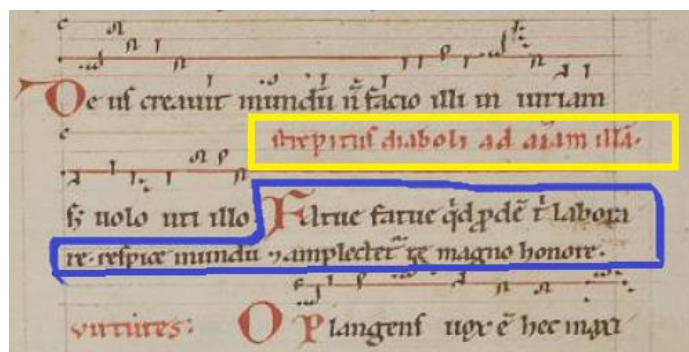 De us creauit mundū n̄ facio illi in iuriam
Strepitus diaboli ad aīam illā.
sꝫ uolo uti illo. Fatue fatue qͥd ꝓdē tͥ labora
re. respice mundū ⁊ amplectet᷑ te magno honore.
virtutes: O Plangens uox ē hec maxi